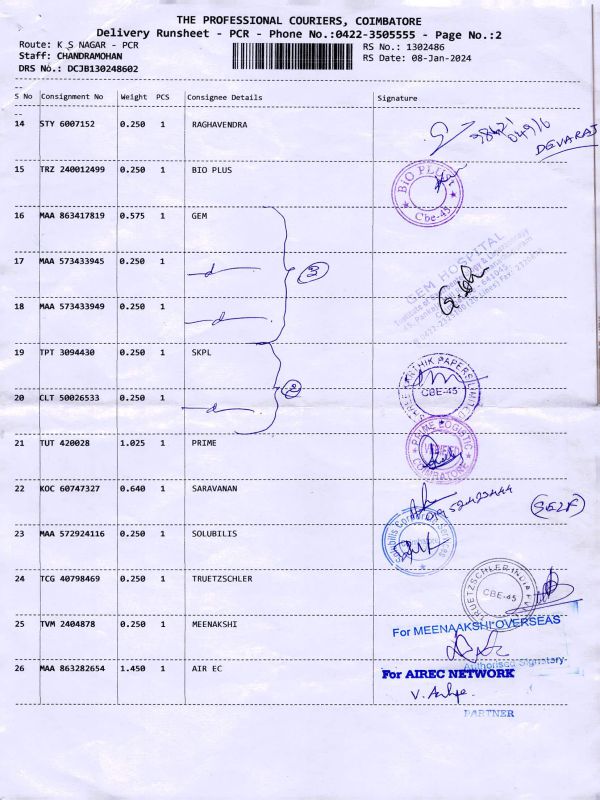 THE PROFESSIONAL COURIERS, COIMBATORE
Delivery Runsheet - PCR - Phone No.:0422-3505555 - Page No.:2
Route: K S NAGAR - PCR RS No.: 1302486
Staff: CHANDRAMOHAN RS Date: 08-Jan-2024
DRS No.: DCJB130248602
S No Consignment No Weight PCS Consignee Details Signature
14 STY 6007152 0.250 1 RAGHAVENDRA
DEVARAJ
15 TRZ 240012499 0.250 1 BIO PLUS
BIO PLUS Cbe-45
16 MAA 863417819 0.575 1 GEM
17 MAA 573433945 0.250 1 —d— 3
GEM HOSPITAL
18 MAA 573433949 0.250 1 —d—
19 TPT 3094430 0.250 1 SKPL
20 CLT 50026533 0.250 1 —d— 2
CBE-45
21 TUT 420028 1.025 1 PRIME
PRIME LOGISTIC COIMBATORE
22 KOC 60747327 0.640 1 SARAVANAN
(SELF)
23 MAA 572924116 0.250 1 SOLUBILIS
24 TCG 40798469 0.250 1 TRUETZSCHLER
TRUETZSCHLER INDIA
CBE-45
25 TVM 2404878 0.250 1 MEENAKSHI
For MEENAAKSHI OVERSEAS
Authorised Signatory
26 MAA 863282654 1.450 1 AIR EC
For AIREC NETWORK
PARTNER